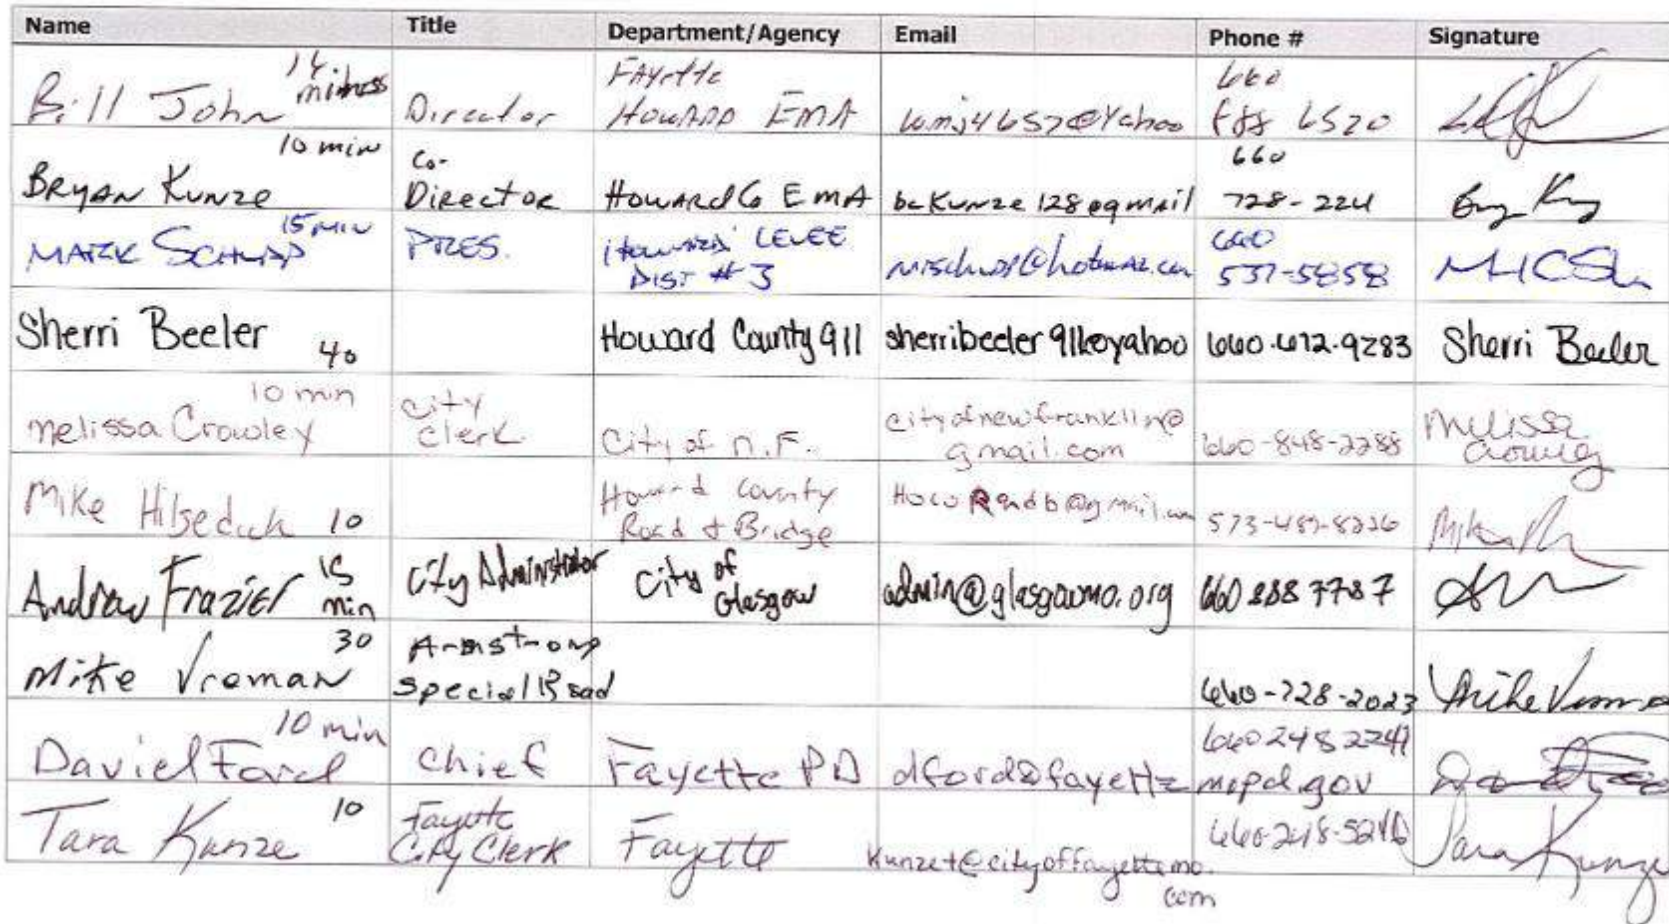 Name Title Department/Agency Email Phone # Signature
Bill John 14 Director Fayette Howard EMA wmj4657@Yahoo 660 6520
Bryan Kunze 10 min Co-Director Howard Co EMA bckunze128@gmail 660 728-224
Mark Schwap 15 min Pres. Howard Levee Dist #3 660 537-5858
Sherri Beeler 40 Howard County 911 sherribeeler911@yahoo 660-672-9283 Sherri Beeler
Melissa Crowley 10 min City Clerk City of N.F. cityofnewfranklin@gmail.com 660-848-2288 Melissa Crowley
Mike 10 Howard County Road & Bridge HocoRandb@gmail.com 573-489-8226
Andrew Frazier 15 min City Administrator City of Glasgow admin@glasgowmo.org 660 888 7787
Mike Vroman 30 Armstrong Special Road 660-728-2023 Mike
David Ford 10 min Chief Fayette PD dford@fayettemopd.gov 660 248 2241
Tara Kunze 10 Fayette City Clerk Fayette kunzet@cityoffayettemo.com 660-248-5246 Tara Kunze